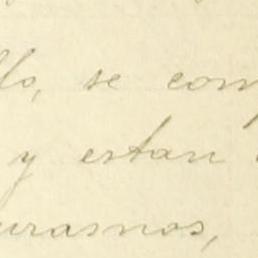 llo, se com
y estan
urasmos,